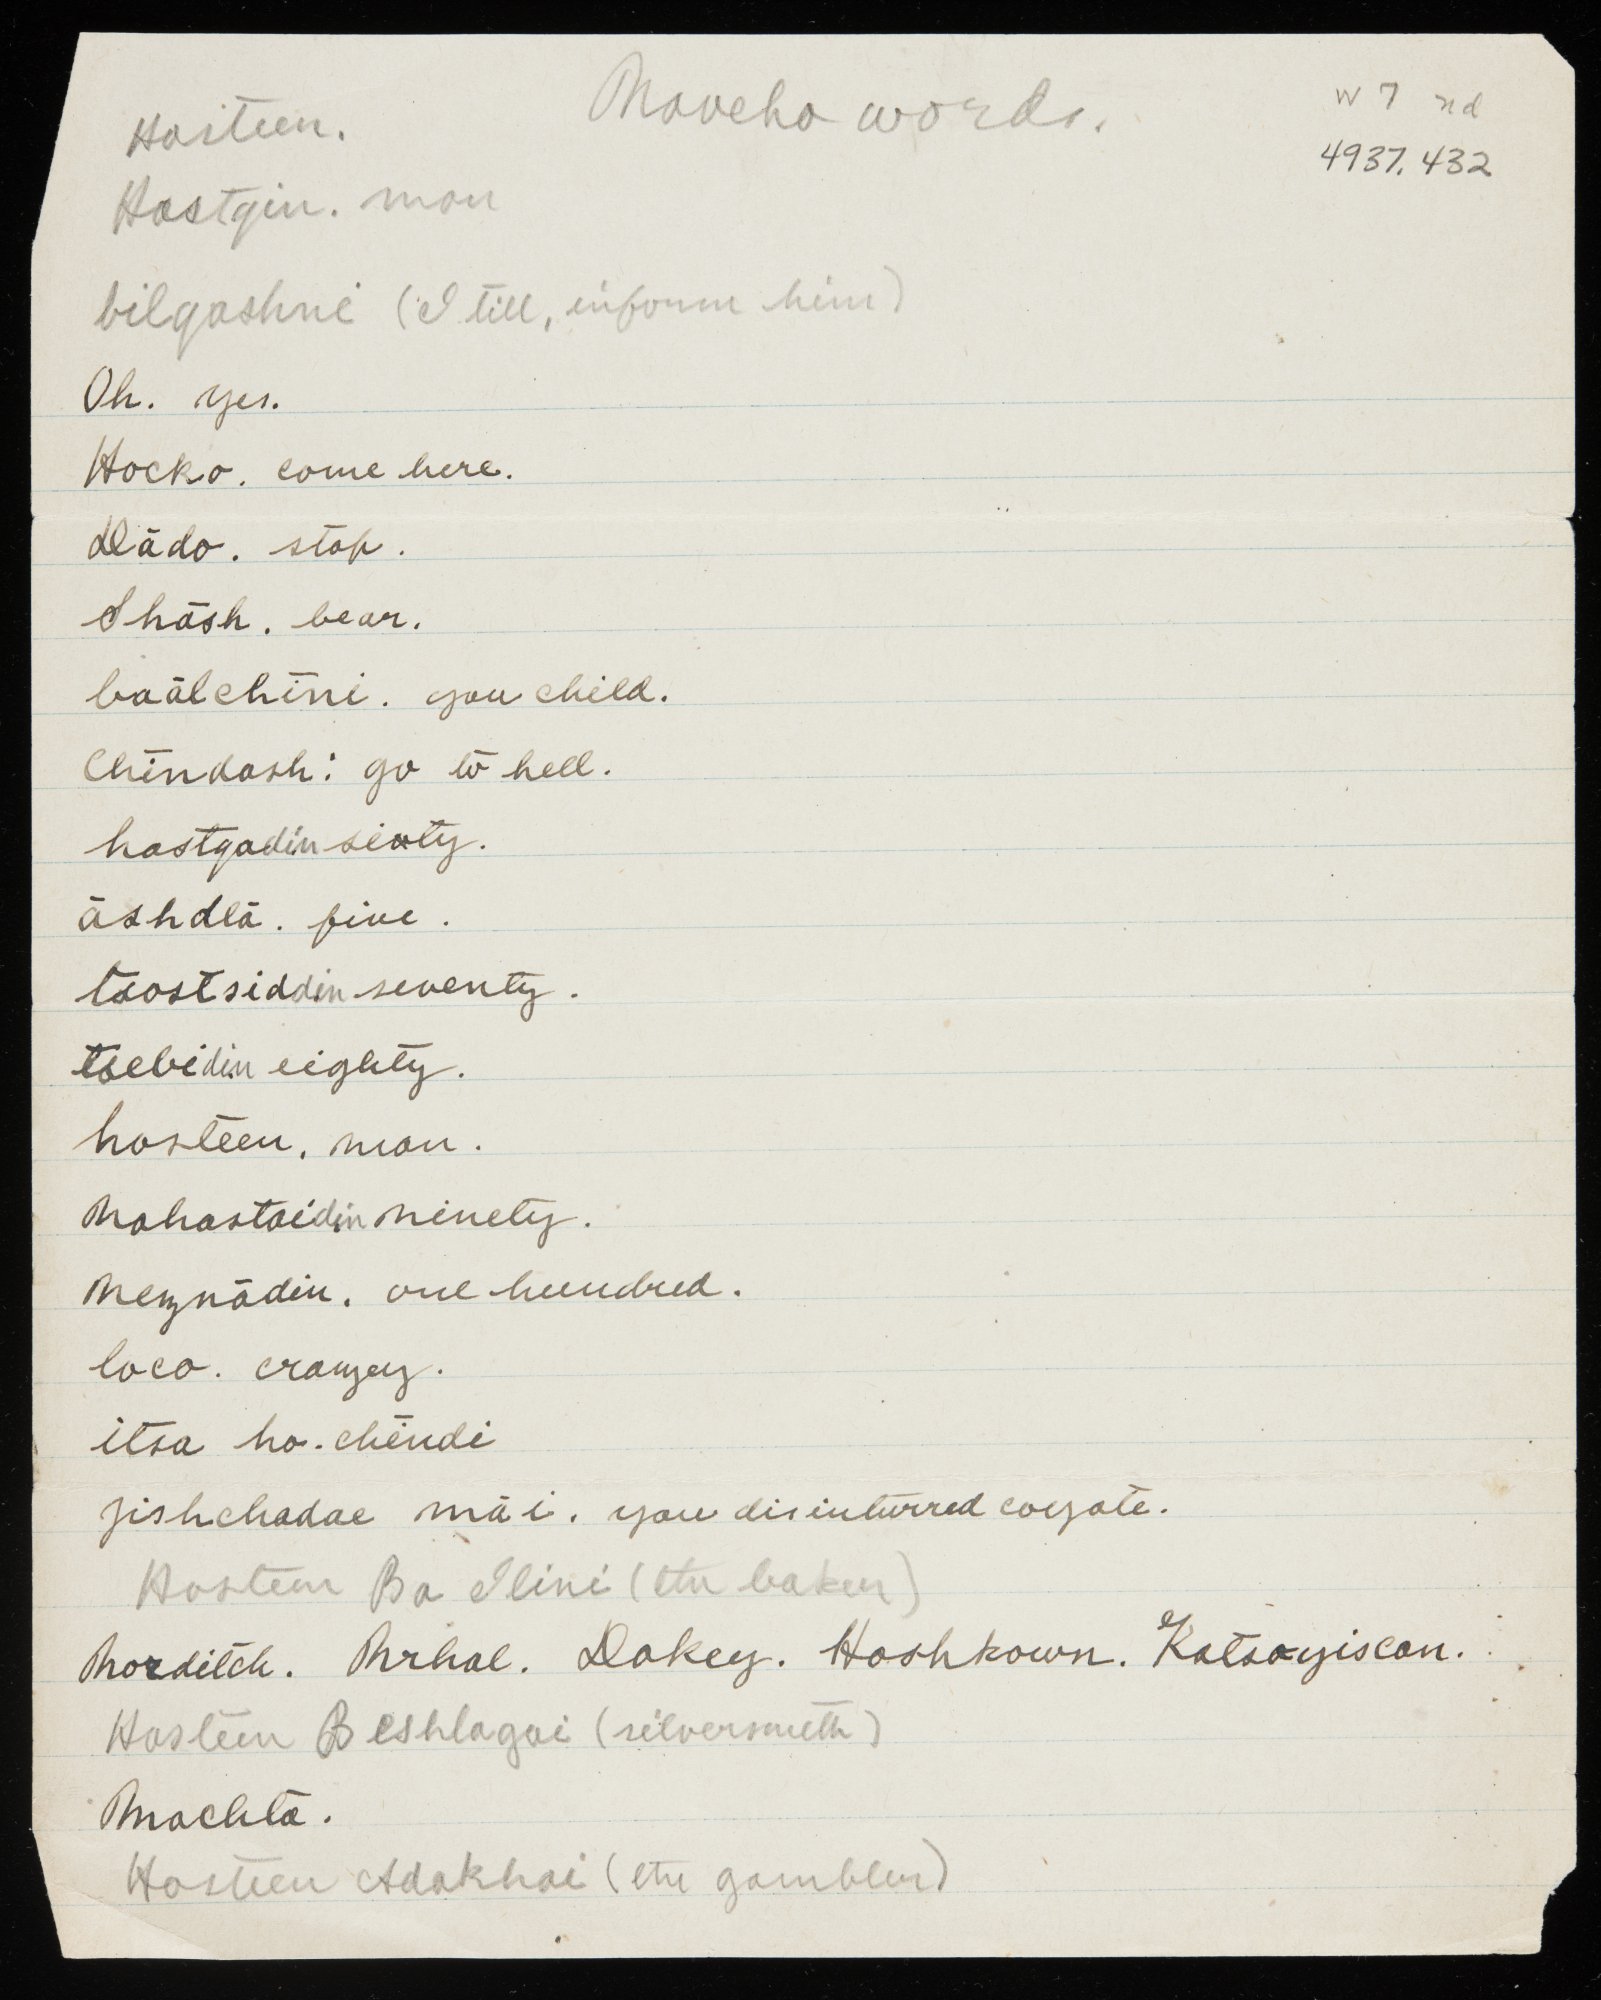 Naveho words.
w 7 nd
4937.432
Hasteen.
Hastqin. man
bilqashni (I tell, inform him)
Oh. yes.
Hocko. come here.
Dādo. stop.
Shāsh. bear.
baālchīni. you child.
Chīndash: go to hell.
hastqadin sixty.
āshdlā. five.
tsostsiddin seventy.
tsebidin eighty.
hasteen. man.
Nahastaidin ninety.
Neznādin. one hundred.
loco. crazey.
itsa ho. chēndi
jishchadae māi. you disinturred coyote.
Hasteen Ba Ilini (the baker)
Norditch. Nrhal. Dakey. Hashkown. Katsayiscan.
Hasteen Beshlagai (silversmith)
Machta.
Hasteen Adakhai (the gambler)